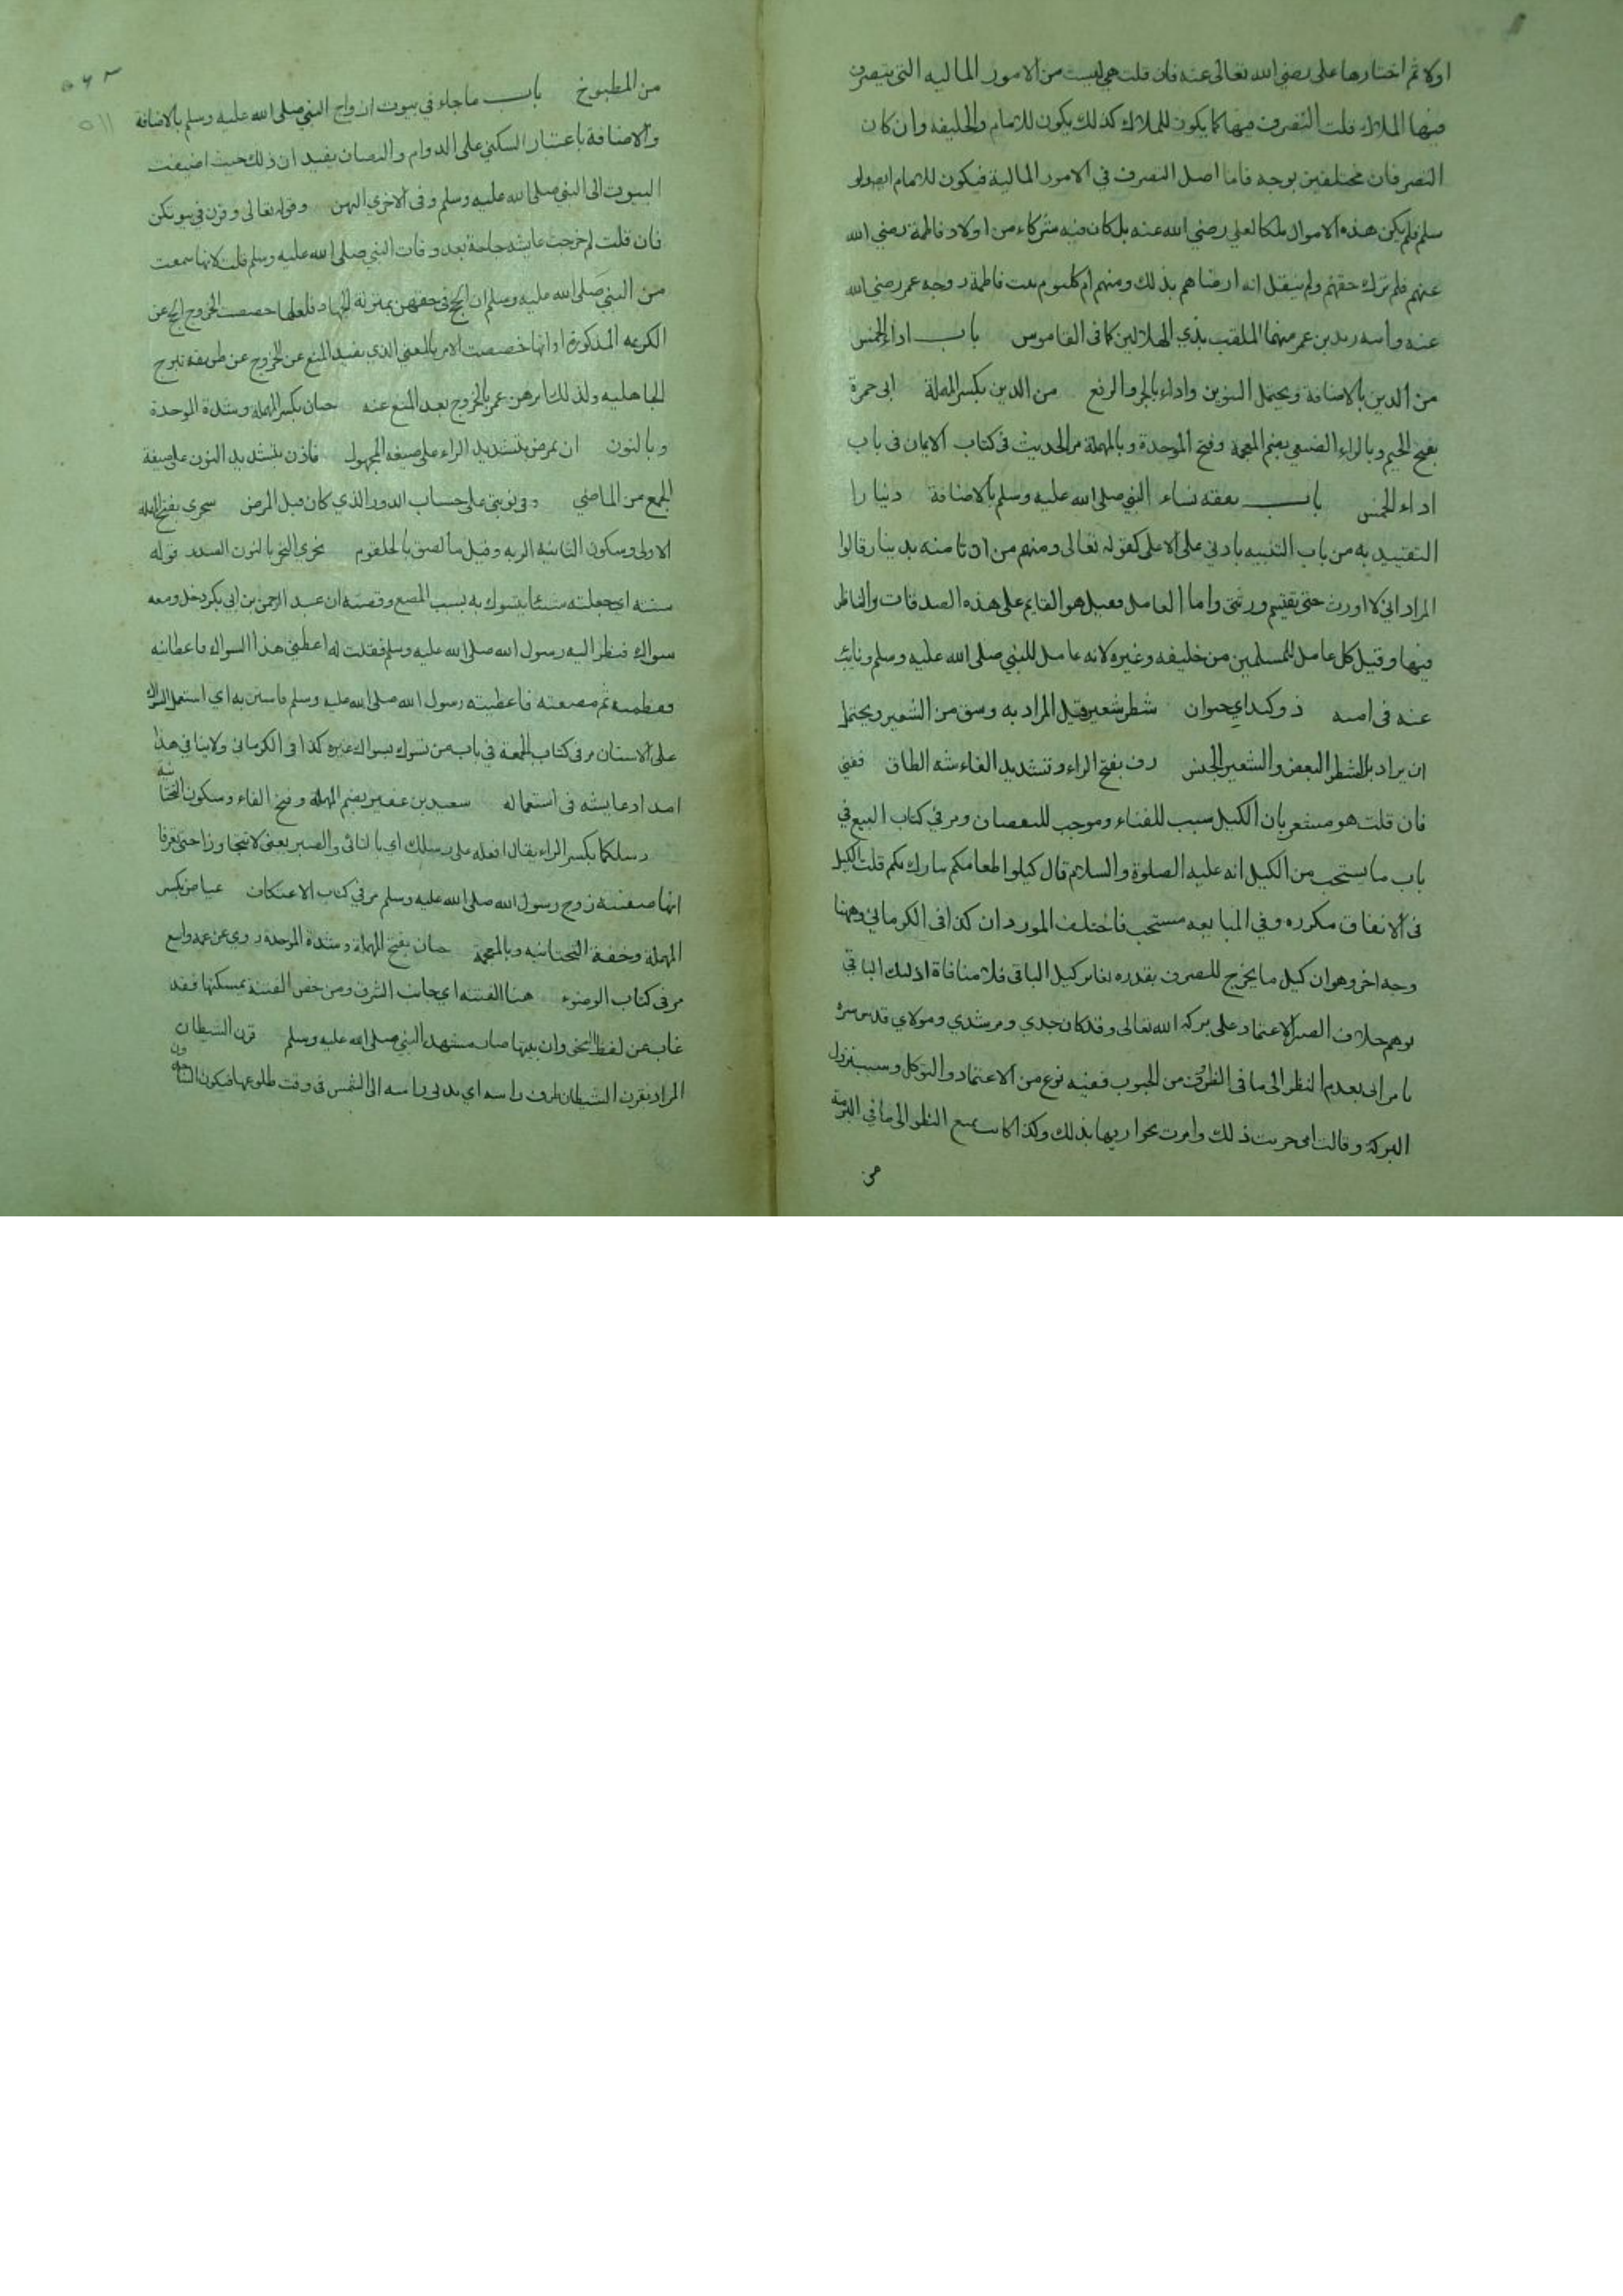 اولا ثم اختارها على رضي الله تعالى عنه فان قلت هي ليست من الامور الماليه التي يتصرف
فيها الملاك قلت التصرف فيها كما يكون للملاك كذلك يكون للامام والخليفه وان كان
التصرفان مختلفين بوجه فاما اصل التصرف في الامور المالية فيكون للامام ايضا ولو
سلم فلم يكن هذه الاموال ملكا لعلي رضي الله عنه بل كان فيه شركاء من اولاد فاطمة رضي الله
عنهم فلم ترك حقهم ولم ينقل انه ارضاهم بذلك ومنهم ام كلثوم بنت فاطمة زوجه عمر رضي الله
عنه وابنه زيد بن عمر منها الملقب بذي الهلالين كما في القاموس باب اداء الخمس
من الدين بالاضافة ويحتمل التنوين واداء بالجر والرفع من الدين بكسر المهملة ابي جمرة
بفتح الجيم وبالراء الضبعي بضم المعجمة وفتح الموحدة وبالمهملة مر الحديث في كتاب الايمان في باب
اداء الخمس باب نفقه نساء النبي صلى الله عليه وسلم بالاضافة دينارا
التقييد به من باب التنبيه بالادني على الاعلى كقوله تعالى ومنهم من ان تامنه بدينار قالوا
المراد اني لا اورث حتى يقتسم ورثتي واما العامل فقيل هو القايم على هذه الصدقات والناظر
فيها وقيل كل عامل للمسلمين من خليفه وغيره لانه عامل للنبي صلى الله عليه وسلم ونايب
عنه في امته ذو كبد اي حيوان شطر شعير قيل المراد به وسق من الشعير ويحتمل
ان يراد بالشطر البعض والشعير الجنس رف بفتح الراء وتشديد الفاء شبه الطاق ففني
فان قلت هو مشعر بان الكيل سبب للفناء وموجب للنقصان ومر في كتاب البيع في
باب ما يستحب من الكيل انه عليه الصلوة والسلام قال كيلوا طعامكم يبارك لكم قلت الكيل
في الانفاق مكروه وفي المبايعه مستحب فاختلف الموردان كذا في الكرماني وههنا
وجه اخر وهو ان كيل ما يخرج للصرف بقدره يغاير كيل الباقي فلا منافاة اذ ليك الباقي
يوهم خلاف الصبر الاعتماد على بركة الله تعالى وقد كان جدي ومرشدي ومولاي قدس سره
يامرني بعدم النظر الى ما في الظروف من الحبوب ففيه نوع من الاعتماد والتوكل وسبب نزول
البركة وقالت امي جربت ذلك وامرت بجواريها بذلك وكذا كانت تمنع النظر الى ما في البرمة
من
من المطبوخ باب ما جاء في بيوت ازواج النبي صلى الله عليه وسلم بالاضافة
والاضافة باعتبار السكني على الدوام والنصان يفيد ان ذلك حيث اضيفت
البيوت الى النبي صلى الله عليه وسلم وفي الاخري اليهن وقوله تعالى وقرن في بيوتكن
فان قلت لم خرجت عايشه حاجة بعد وفات النبي صلى الله عليه وسلم قلت لانها سمعت
من النبي صلى الله عليه وسلم ان الحج في حقهن بمنزلة الجهاد فلعلها خصصت الخروج الحج عن
الكريمه المذكورة او انها خصصت الامر بالمعني الذي يفيد المنع عن الخروج عن طريقه تبرج
الجاهليه ولذلك امرهن عمر بالخروج بعد المنع عنه حبان بكسر المهملة وشدة الموحدة
وبالنون ان يمرض بتشديد الراء على صيغه المجهول فاذن بتشديد النون على صيغة
الجمع من الماضي وفي نوبتي على حساب الدور الذي كان قبل المرض سحري بفتح المهملة
الاولى وسكون الثانية الريه وقيل ما لصق بالحلقوم نحري النحر بالنون الصدر قوله
سننته اي جعلته شيئا يتسوك به بسبب المضغ وقصته ان عبد الرحمن بن ابي بكر دخل ومعه
سواك فنظر اليه رسول الله صلى الله عليه وسلم فقلت له اعطني هذا السواك فاعطانيه
فقطمته ثم مضغته فاعطيته رسول الله صلى الله عليه وسلم فاستن به اي استعمل السواك
على الاسنان مر في كتاب الجمعة في باب من تسوك بسواك غيره كذا في الكرماني ولا ينافي هذا
امداد عايشه في استعماله سعيد بن عفير بضم المهملة وفتح الفاء وسكون التحتانية
رسلكما بكسر الراء يقال افعله على رسلك اي بالتاني والصبر يعني لا تتجاوزا حتى تعرفا
انها صفية زوج رسول الله صلى الله عليه وسلم مر في كتاب الاعتكاف عياض بكسر
المهملة وخفة التحتانيه وبالمعجمة حبان بفتح المهملة وشدة الموحدة روي عن عمه واسع
مر في كتاب الوضوء هنا الفتنه اي جانب الشرق ومن خص الفتنه بمسكنها فقد
غاب عن لفظ وان بيتها صار مشهد النبي صلى الله عليه وسلم قرن الشيطان
المراد بقرن الشيطان طرف راسه اي يدني راسه الى الشمس في وقت طلوعها فيكون